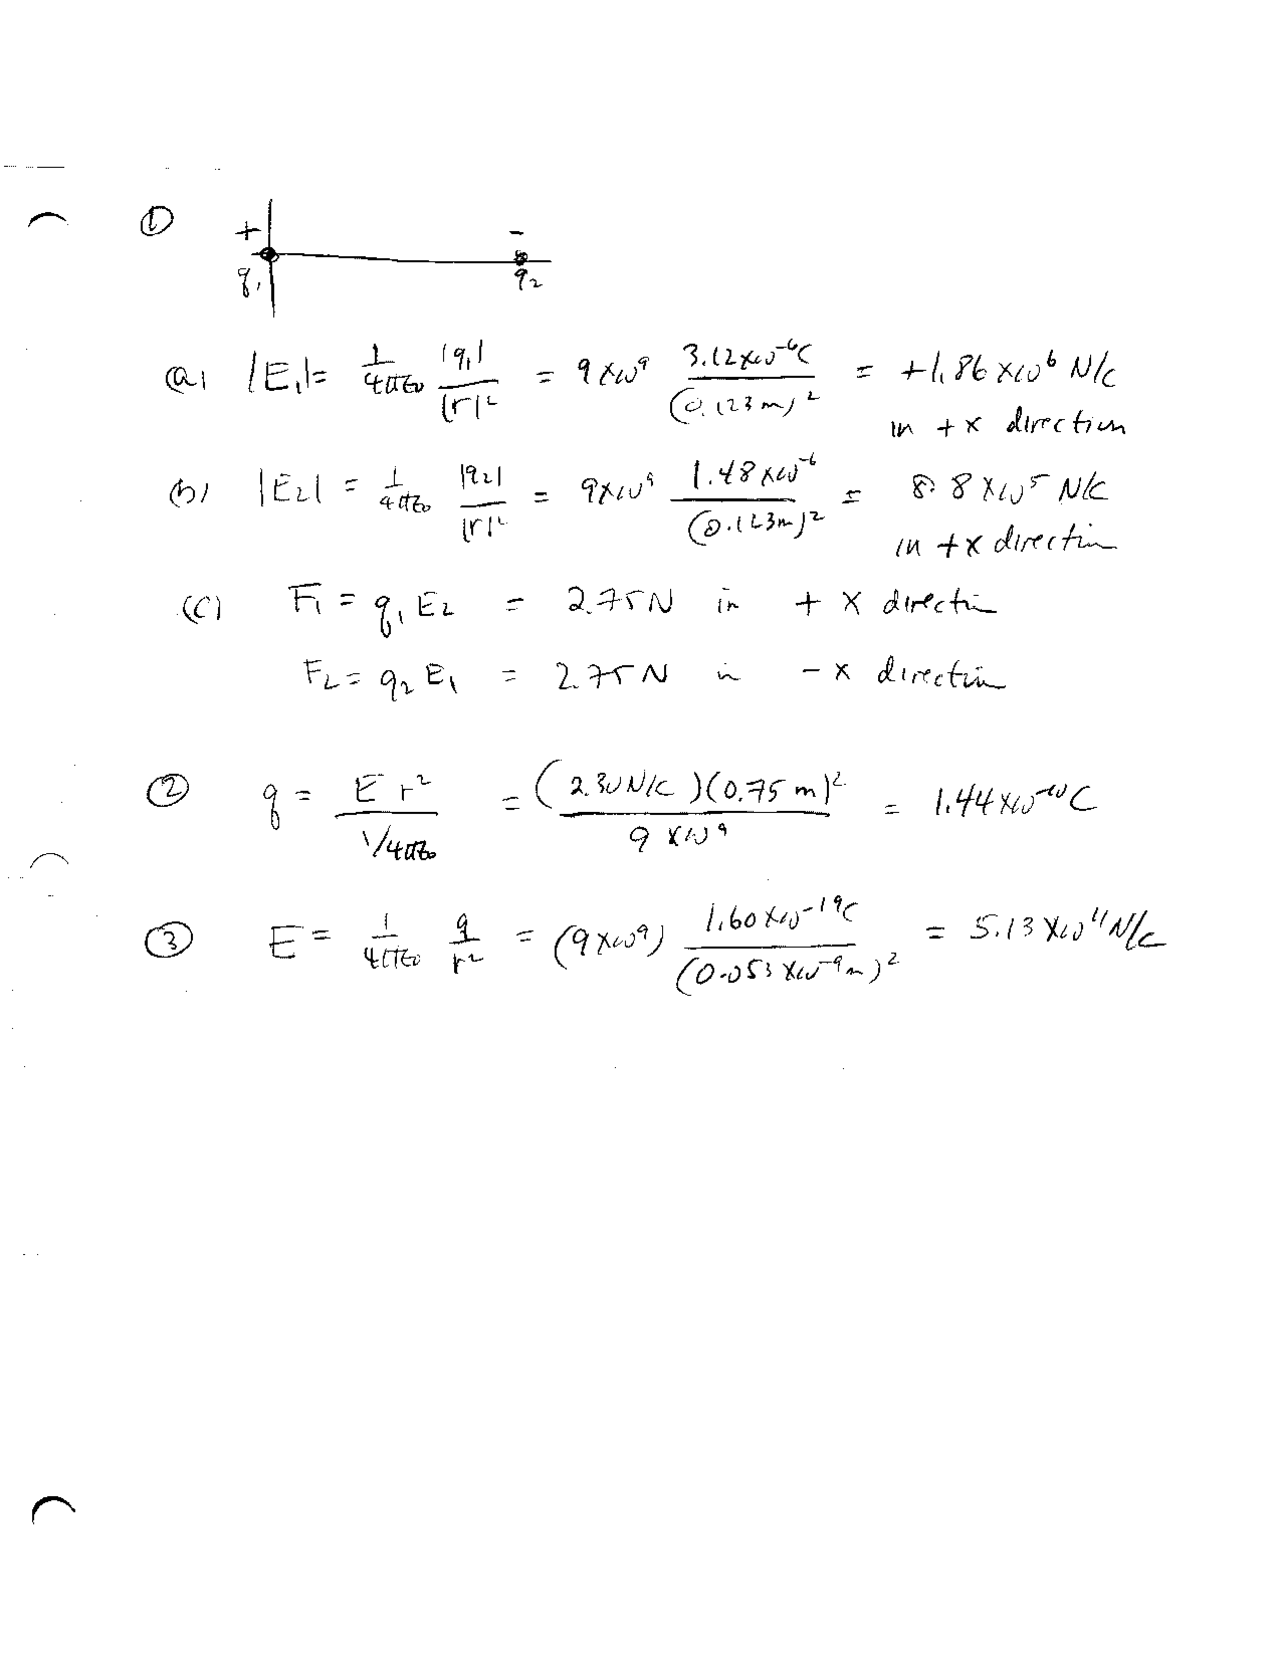 ① + -
q₁ q₂
(a) |E₁| = 1/4πε₀ |q₁|/|r|² = 9×10⁹ 3.12×10⁻⁶C/(0.123m)² = +1.86×10⁶ N/C
in +x direction
(b) |E₂| = 1/4πε₀ |q₂|/|r|² = 9×10⁹ 1.48×10⁻⁶/(0.123m)² = 8.8×10⁵ N/C
in +x direction
(c) F₁ = q₁E₂ = 2.75N in +x direction
F₂ = q₂E₁ = 2.75N in -x direction
② q = E r²/1/4πε₀ = (2.30N/C)(0.75m)²/9×10⁹ = 1.44×10⁻¹⁰C
③ E = 1/4πε₀ q/r² = (9×10⁹) 1.60×10⁻¹⁹C/(0.053×10⁻⁹m)² = 5.13×10¹¹N/C